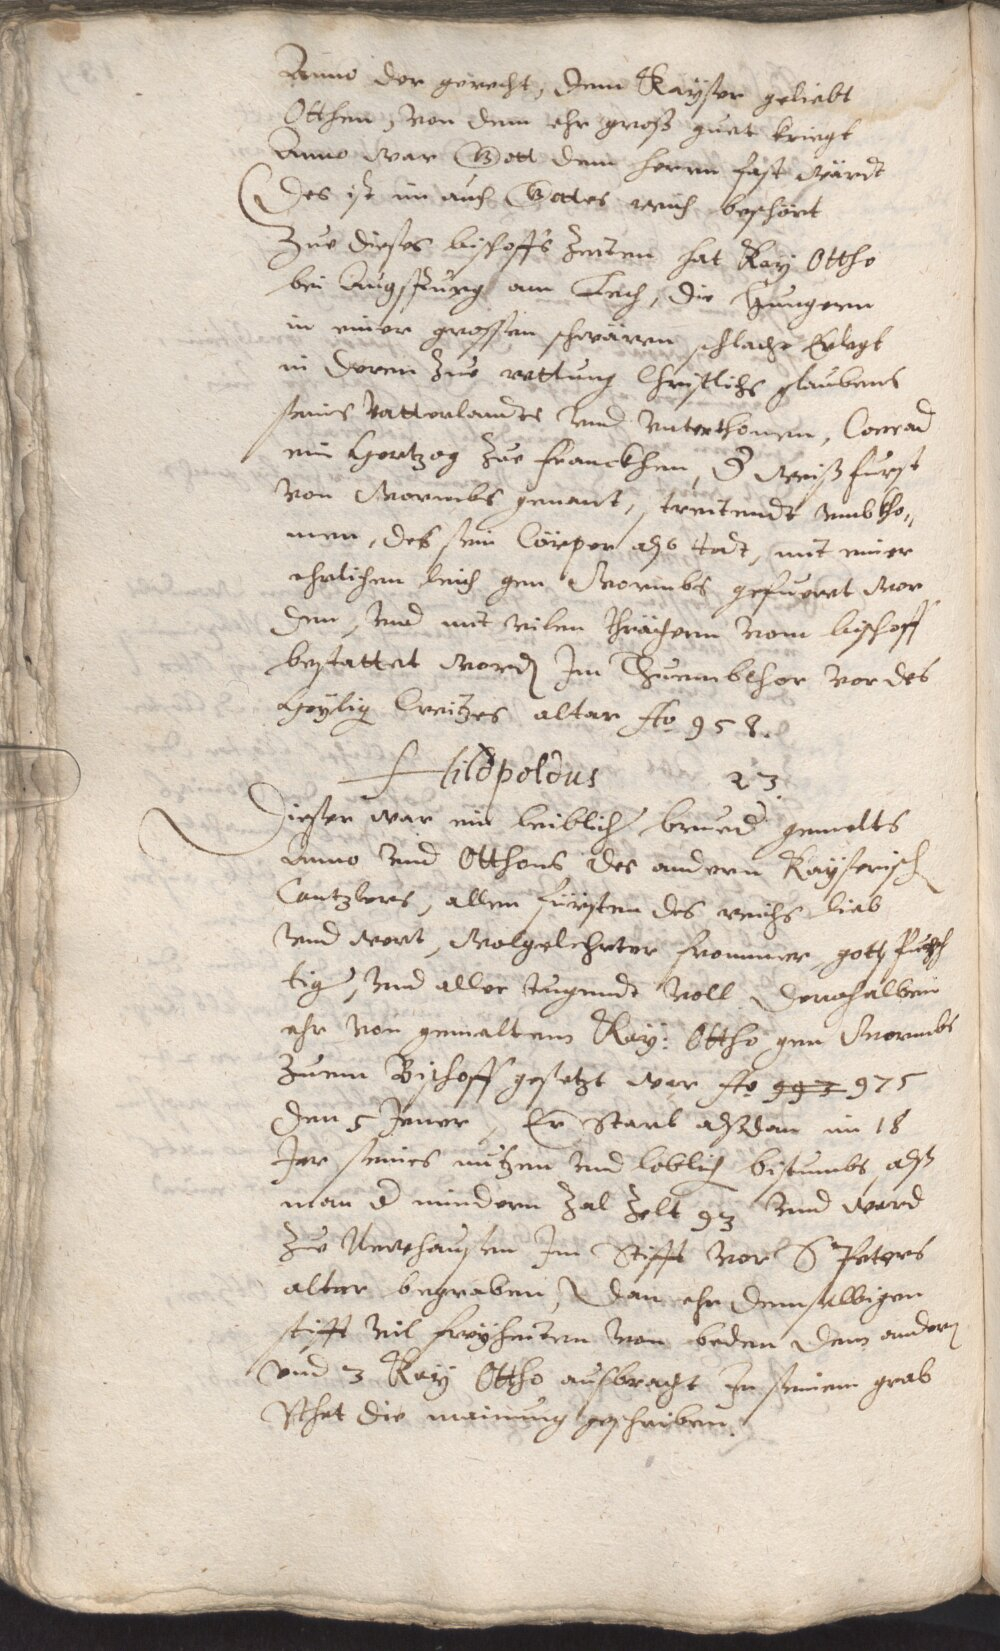 Anno der gerecht, dem Kayßer geliebt
Otthen, von dem ehr groß guet kriegt
Anno war Gott dem herrn fast wärdt
Des ist im auch Gottes reich beschört
Zue dießes bischoffs Zeitten hat Kay Ottho
bei Augspurg am Lech, die Hungern
in einer grossen schwären schlacht Erlegt
in deren Zue rettung Christlichs glaubens
seines Vatterlandts vnd vnterthonen, Conrad
ein Hertzog Zue franckhen, d weiß fürst
von Wormbs genant, streitendt vmbkho„
men, deß sein Cörper also todt, mit einer
ehrlichen leich gen Wormbs gefuert wor
den, vnd mit vilen thrähern vom bischoff
bestattet word Im Thuembchor vor des
Heylig Creitzes altar Ao 958.
Hildpoldus 23
Dießer war ein leiblich brued gemelts
Anno vnd Otthons des andern Kayserisch
Cantzlers, allen fürsten des reichs lieb
vnd wert, Wolgelehrter frommer, gottsfürch
tig, vnd aller tugendt voll. Derohalben
ehr von gemaltem Kay: Ottho gen Wormbs
Zuem Bischoff gesetzt war Ao 993 975
den 5 Jener, Er Starb alßdan im 18
Jar seines nutzen vnd loblich bistumbs, alß
man d mindern Zal Zelt 93 vnd ward
Zue Newhaußen Im Stifft vor S Peters
altar begraben, Dan ehr demselbigen
stifft vil freyheiten von beden dem andern
vnd 3 Kay Ottho ausbracht In seinem grab
sthet die mainung geschriben.